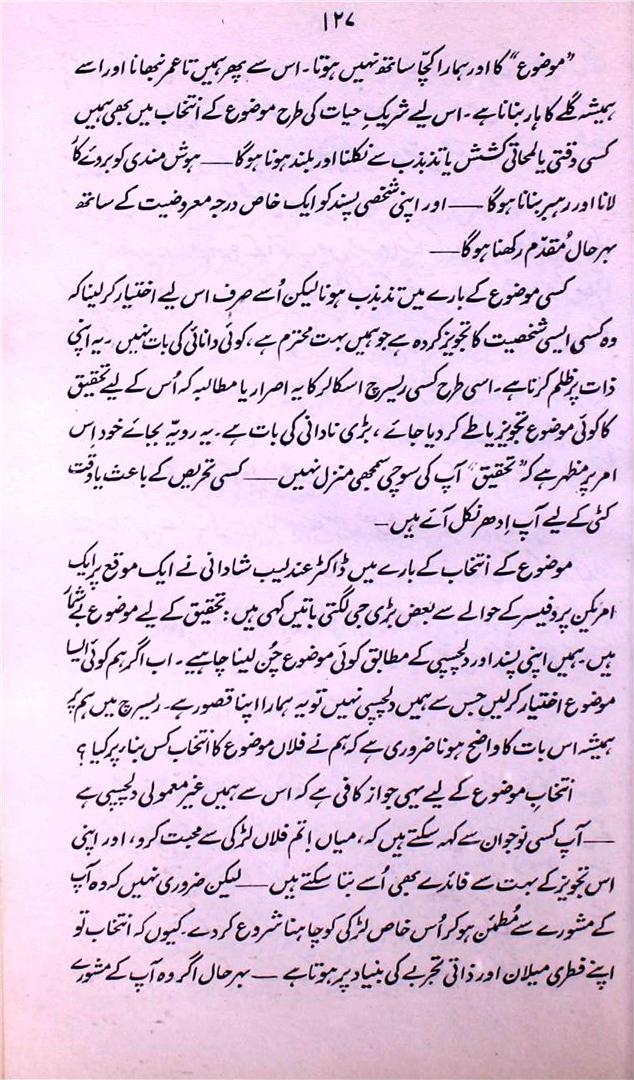 ۱۲۷
”موضوع“ کا اور ہمارا کچّا ساتھ نہیں ہوتا۔ اس سے پھر ہمیں تا عمر نبھانا اور اسے
ہمیشہ گلے کا ہار بنانا ہے۔ اس لیے شریکِ حیات کی طرح موضوع کے انتخاب میں بھی ہمیں
کسی وقتی یا لمحاتی کشش یا تذبذب سے نکلنا اور بلند ہونا ہوگا —— ہوش مندی کو بروئے کار
لانا اور رہبر بنانا ہوگا —— اور اپنی شخصی پسند کو ایک خاص درجہ معروضیت کے ساتھ
بہرحال مُقدّم رکھنا ہوگا —
کسی موضوع کے بارے میں تذبذب ہونا لیکن اُسے صرف اس لیے اختیار کر لینا کہ
وہ کسی ایسی شخصیت کا تجویز کردہ ہے جو ہمیں بہت محترم ہے، کوئی دانائی کی بات نہیں۔ یہ اپنی
ذات پر ظلم کرنا ہے۔ اسی طرح کسی ریسرچ اسکالر کا یہ اصرار یا مطالبہ کہ اُس کے لیے تحقیق
کا کوئی موضوع تجویز یا طے کر دیا جائے، بڑی نادانی کی بات ہے۔ یہ رویّہ بجائے خود اِس
امر پر مظہر ہے کہ ”تحقیق“ آپ کی سوچی سمجھی منزل نہیں —— کسی تحریص کے باعث یا وقت
کٹی کے لیے آپ اِدھر نکل آئے ہیں —
موضوع کے انتخاب کے بارے میں ڈاکٹر عندلیب شادانی نے ایک موقع پر ایک
امریکن پروفیسر کے حوالے سے بعض بڑی جی لگتی باتیں کہی ہیں: تحقیق کے لیے موضوع بے شمار
ہیں۔ ہمیں اپنی پسند اور دلچسپی کے مطابق کوئی موضوع چُن لینا چاہیے۔ اب اگر ہم کوئی ایسا
موضوع اختیار کر لیں جس سے ہمیں دلچسپی نہیں تو یہ ہمارا اپنا قصور ہے۔ ریسرچ میں ہم پر
ہمیشہ اس بات کا واضح ہونا ضروری ہے کہ ہم نے فلاں موضوع کا انتخاب کس بناء پر کیا؟
انتخابِ موضوع کے لیے یہی جواز کافی ہے کہ اس سے ہمیں غیر معمولی دلچسپی ہے
—— آپ کسی نوجوان سے کہہ سکتے ہیں کہ، میاں! تم فلاں لڑکی سے محبت کرو، اور اپنی
اس تجویز کے بہت سے فائدے بھی اُسے بتا سکتے ہیں —— لیکن ضروری نہیں کہ وہ آپ
کے مشورے سے مُطمئن ہو کر اُس خاص لڑکی کو چاہنا شروع کر دے۔ کیوں کہ انتخاب تو
اپنے فطری میلان اور ذاتی تجربے کی بنیاد پر ہوتا ہے — بہرحال اگر وہ آپ کے مشورے